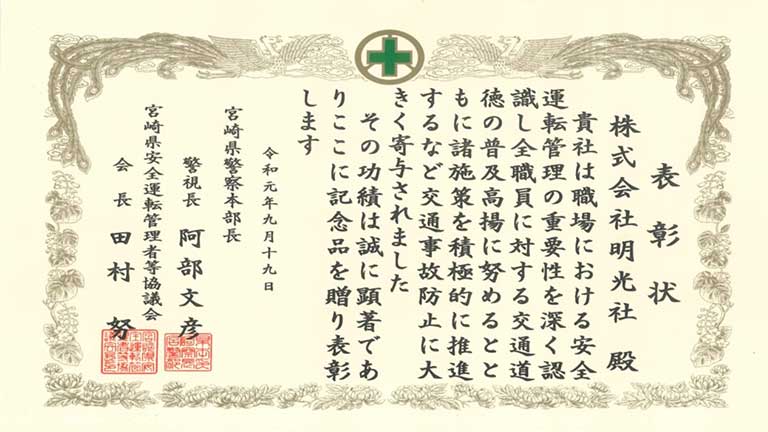 表彰状
株式会社明光社 殿
貴社は職場における安全
運転管理の重要性を深く認
識し全職員に対する交通道
徳の普及高揚に努めるとと
もに諸施策を積極的に推進
するなど交通事故防止に大
きく寄与されました
その功績は誠に顕著であ
りここに記念品を贈り表彰
します
令和元年九月十九日
宮崎県警察本部長
警視長 阿部文彦
宮崎県安全運転管理者等協議会
会長 田村努